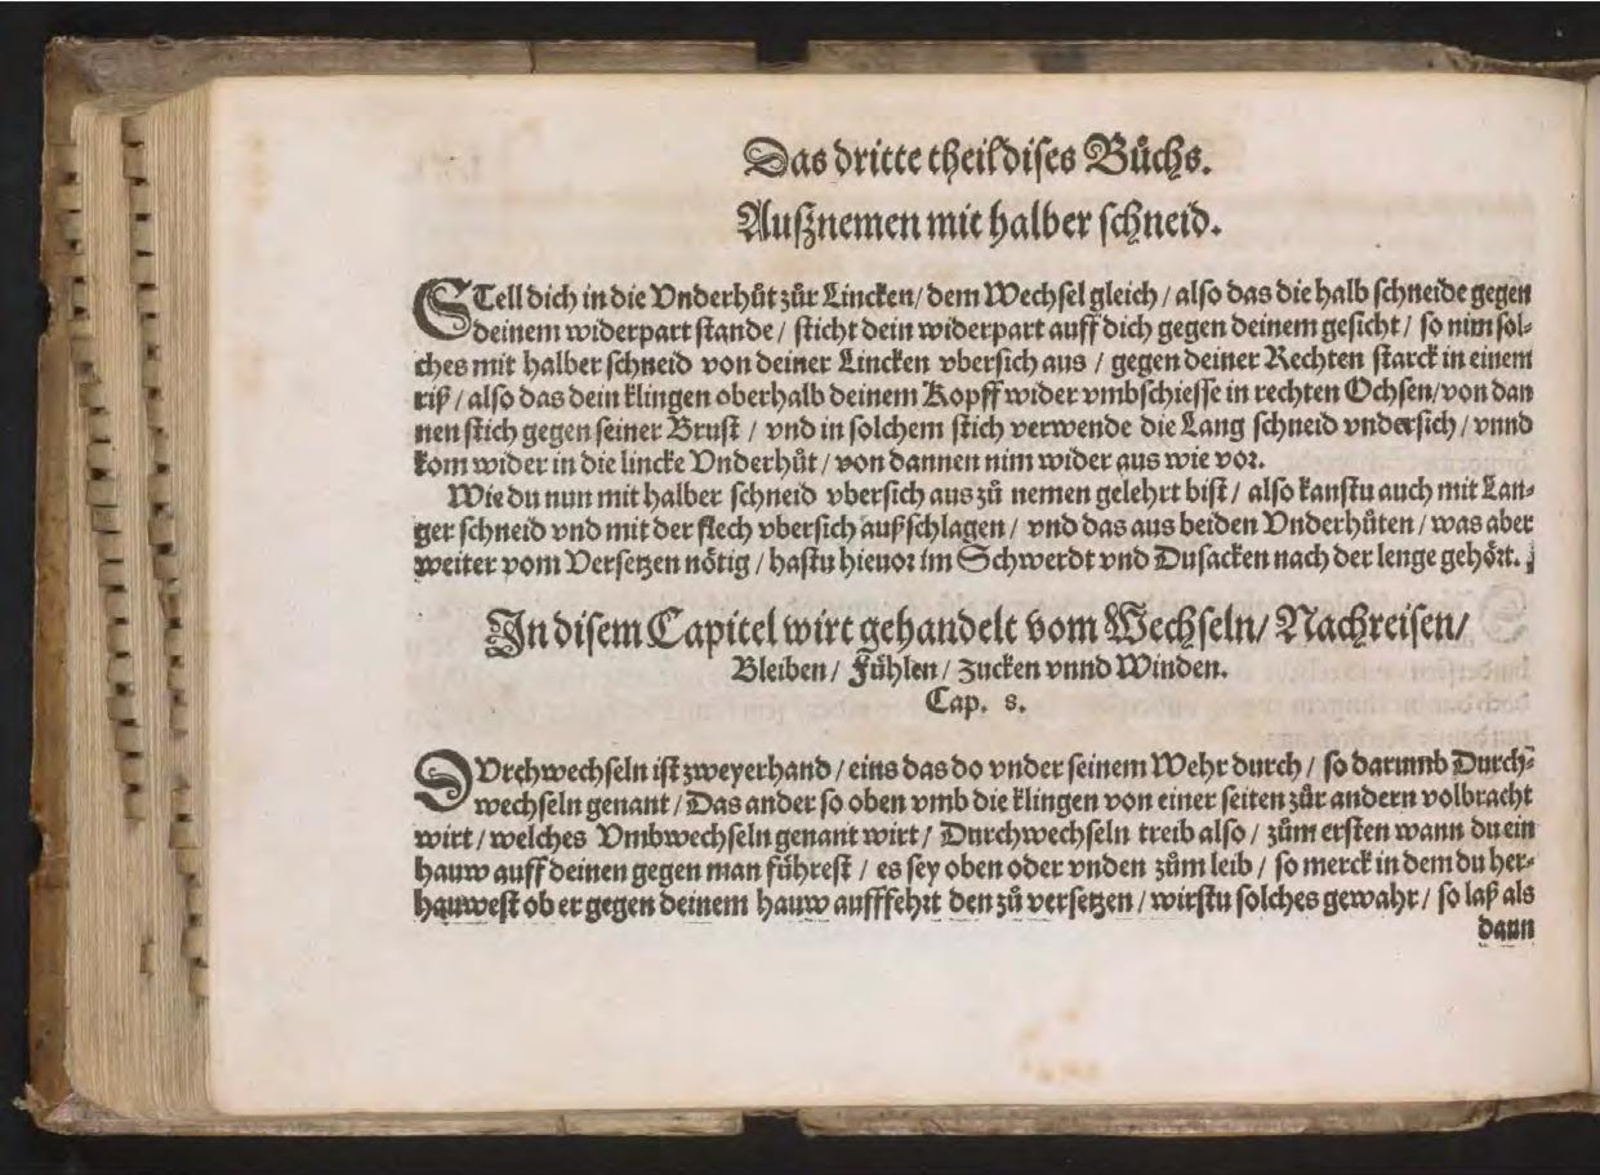 Das dritte theil dises Bůchs.
Außnemen mit halber schneid.
STell dich in die Vnderhůt zůr Lincken / dem Wechsel gleich / also das die halb schneide gegen
deinem widerpart stande / sticht dein widerpart auff dich gegen deinem gesicht / so nim sol⸗
ches mit halber schneid von deiner Lincken vbersich aus / gegen deiner Rechten starck in einem
riß / also das dein klingen oberhalb deinem Kopff wider vmbschiesse in rechten Ochsen / von dan
nen stich gegen seiner Brust / vnd in solchem stich verwende die Lang schneid vndersich / vnnd
kom wider in die lincke Vnderhůt / von dannen nim wider aus wie vor.
Wie du nun mit halber schneid vbersich aus zů nemen gelehrt bist / also kanstu auch mit Lan⸗
ger schneid vnd mit der flech vbersich außschlagen / vnd das aus beiden Vnderhůten / was aber
weiter vom Versetzen nötig / hastu hieuor im Schwerdt vnd Dusacken nach der lenge gehört.
In disem Capitel wirt gehandelt vom Wechseln / Nachreisen /
Bleiben / Fühlen / Zucken vnnd Winden.
Cap. 8.
DVrchwechseln ist zweyerhand / eins das do vnder seinem Wehr durch / so darumb Durch⸗
wechseln genant / Das ander so oben vmb die klingen von einer seiten zůr andern volbracht
wirt / welches Vmbwechseln genant wirt / Durchwechseln treib also / zům ersten wann du ein
hauw auff deinen gegen man führest / es sey oben oder vnden zům leib / so merck in dem du her⸗
hauwest ob er gegen deinem hauw aufffehrt den zů versetzen / wirstu solches gewahr / so laß als
dann